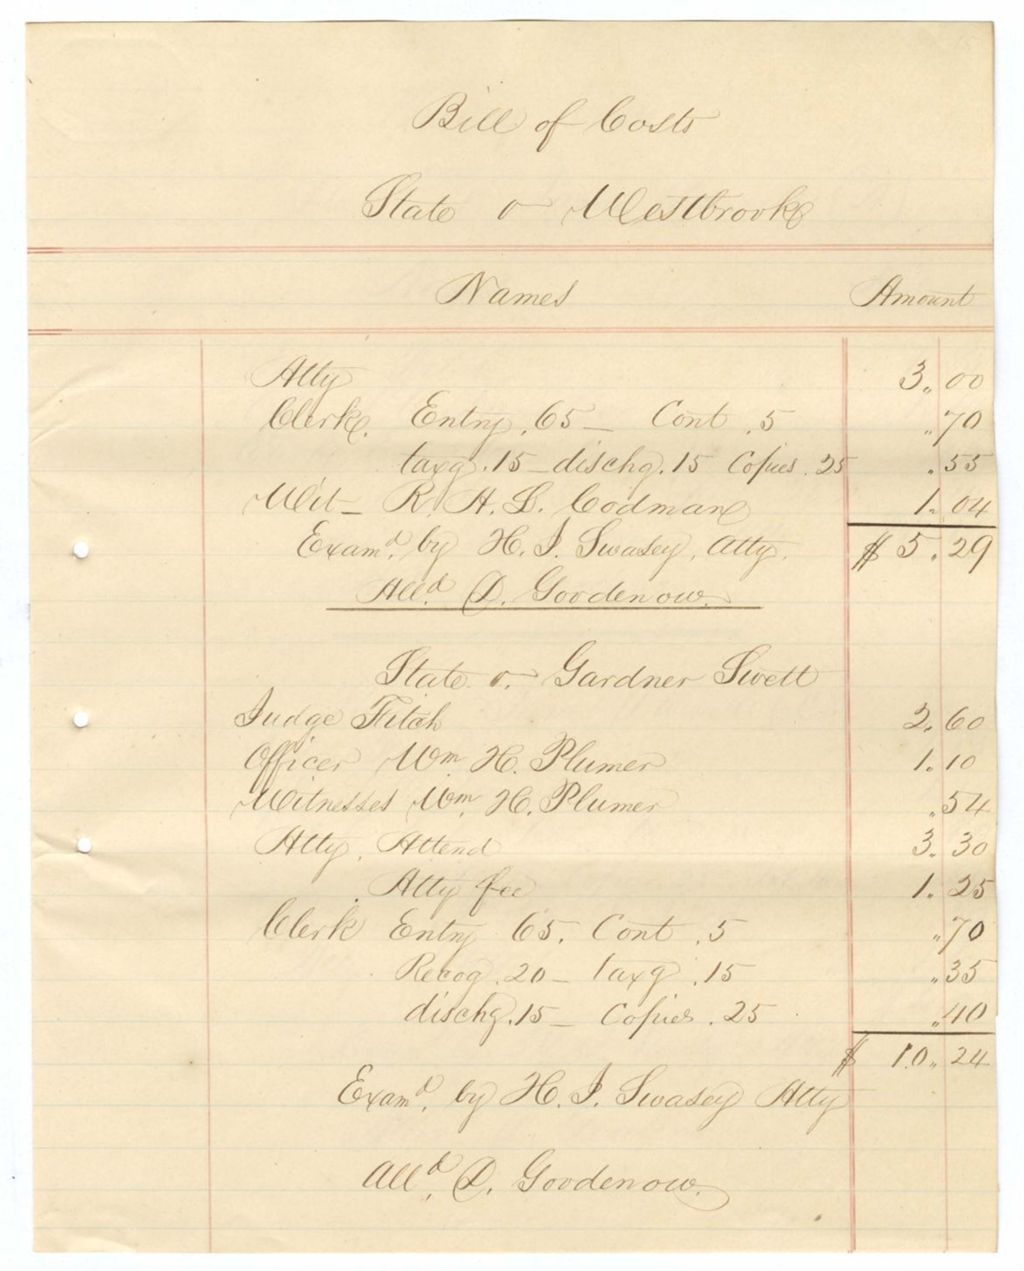 Bill of Costs
State v Westbrook
Names Amount
Atty 3.00
Clerk. Entry .65 — Cont .5 .70
taxg .15 — dischg .15 Copies .25 .55
Wit — R. H. L. Codman 1.04
Examd. by H. I. Swasey, Atty. $5.29
Alld. D. Goodenow.
State v. Gardner Swett
Judge Fitch 2.60
Officer Wm H. Plumer 1.10
Witnesses Wm. H. Plumer .54
Atty. Attend 3.30
Atty fee 1.25
Clerk Entry 65. Cont .5 .70
Recog .20 — taxg .15 .35
dischg .15 — Copies .25 .40
$10.24
Examd. by H. I. Swasey Atty
Alld. D. Goodenow.